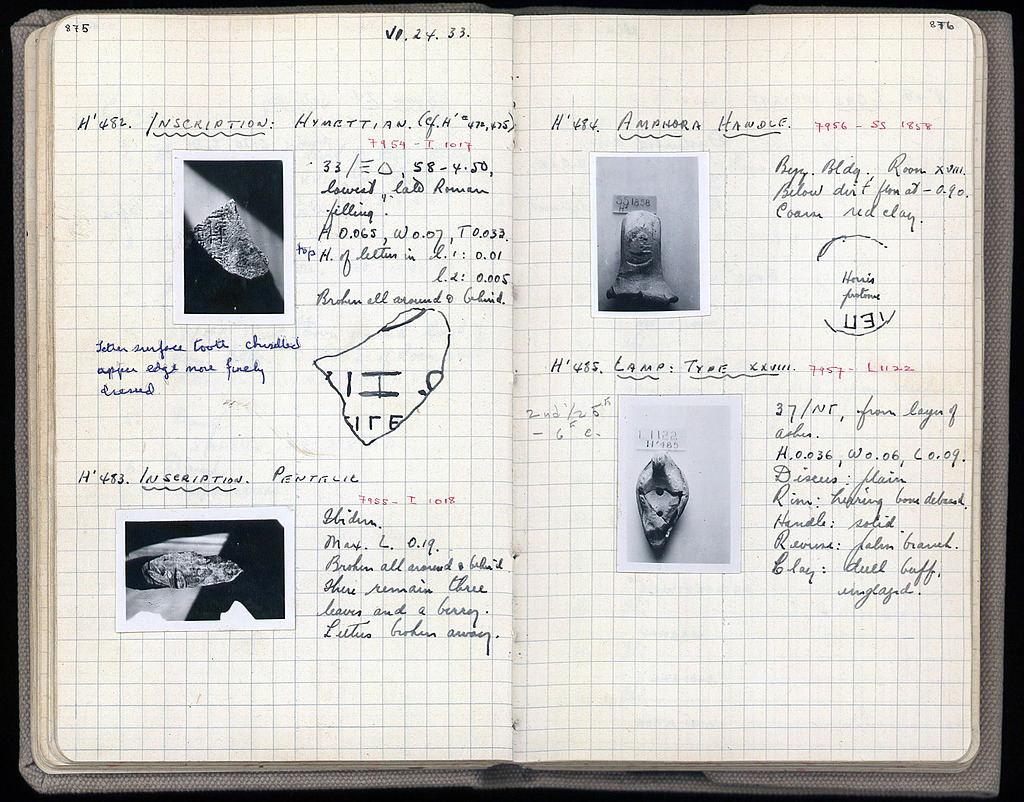 875
VI. 24. 33.
H'482. INSCRIPTION: HYMETTIAN. (Cf. H'ˢ 472, 475)
7954 - I 1017
33/ΞΔ, 58-4.50,
lowest, "late Roman
filling".
H 0.065, W 0.07, T 0.033.
top H. of letters in l. 1: 0.01
l. 2: 0.005
Broken all around & behind.
surface tooth chiselled
upper edge more finely
dressed
ΙΓΕ
H'483. INSCRIPTION. PENTELIC
7955 - I 1018
Ibidem.
Max. L. 0.19.
Broken all around & behind
There remain three
leaves and a berry.
Letters broken away.
876
H'484. AMPHORA HANDLE. 7956 - SS 1858
SS 1858
Byz. Bldg, Room XVIII.
Below dirt floor at -0.90.
Coarse red clay.
protome
H'485. LAMP: TYPE XXVIII. 7957 - L 1122
2nd 1/2 5th
- 6th c.
L 1122
H'485
37/ΝΤ, from layer of
ashes.
H. 0.036, W 0.06, L 0.09.
Discus: plain
Rim: herring bone debased.
Handle: solid.
Reverse: palm branch.
Clay: dull buff,
unglazed.